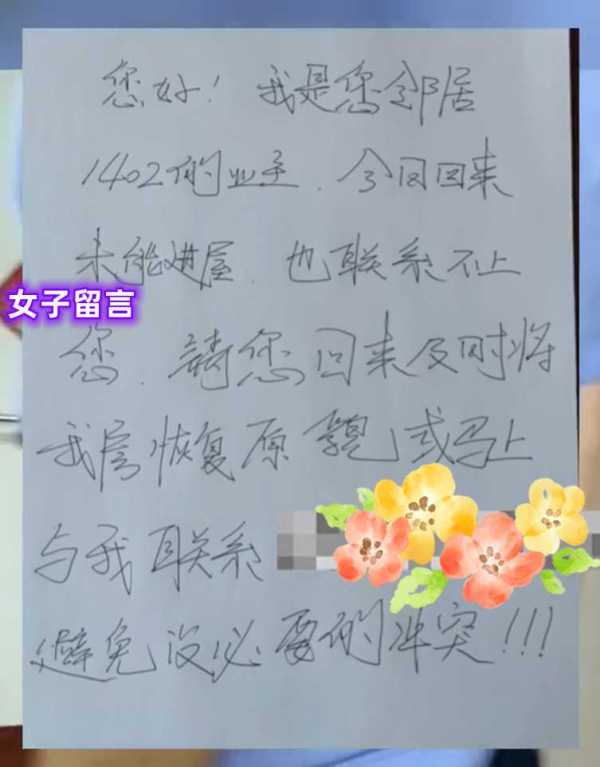 您好！我是您邻居
1402的业主.今日回来
未能进屋.也联系不上
女子留言
您.请您回来及时将
我房恢复原貌或马上
与我联系
避免没必要的冲突!!!